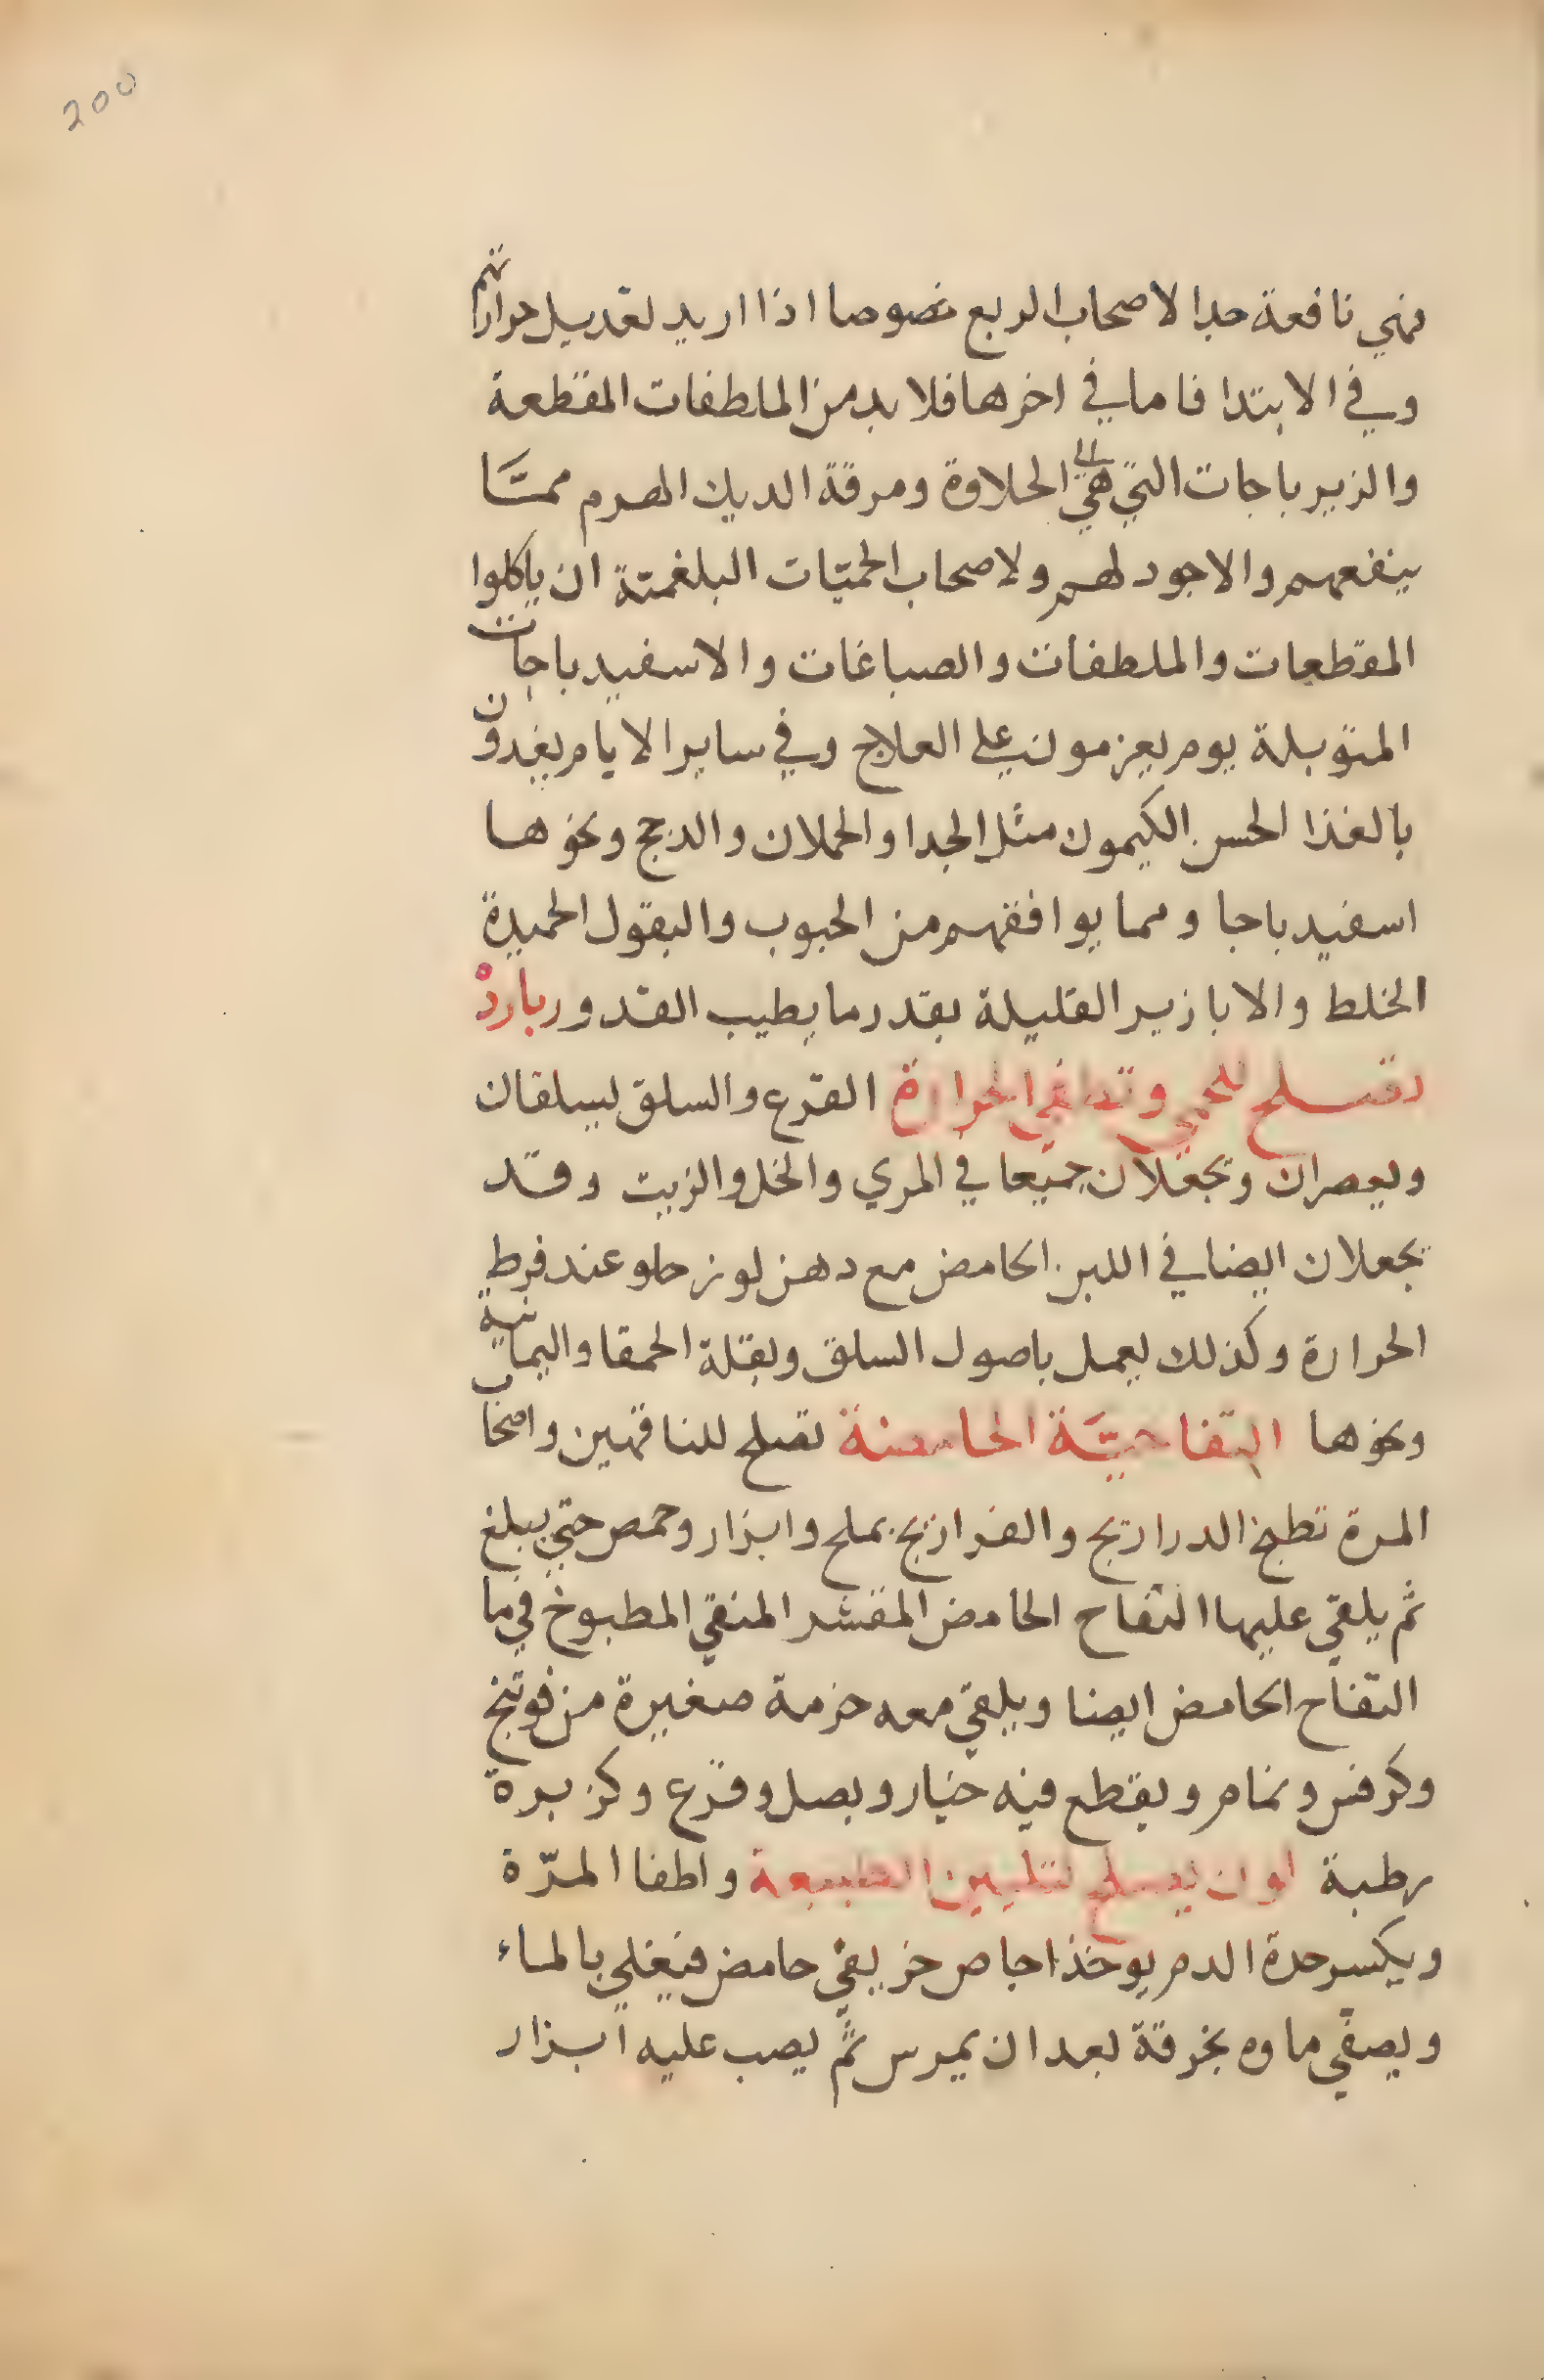 200
فهي نافعة جدا لاصحاب الربع خصوصا اذا اريد تعديل حرارتهم
وفي الابتدا فاما في اخرها فلا بد من الملطفات المقطعة
والزيرباجات التي هي الى الحلاوة ومرقة الديك الهرم ممّا
ينفعهم والاجود لهم ولاصحاب الحميّات البلغميّة ان ياكلوا
المقطعات والملطفات والصباغات والاسفيدباجات
المتوبلة يوم يعزمون على العلاج وفي ساير الايام يغيدون
بالغذا الحسن الكيموس مثل الجدا والحملان والدجج ونحوها
اسفيدباجا ومما يوافقهم من الحبوب والبقول الحميدة
الخلط والابازير القليلة بقدر ما يطيب القدور باردْ
تصلح للحمى وتطفي الحرارة القرع والسلق ليسلقان
ويعصران وتجعلان جميعا في المري والخل والزيت وقد
تجعلان ايضا في اللبن الحامض مع دهن لوز حلو عند فرط
الحرارة وكذلك يعمل باصول السلق وبقلة الحمقا واليمانية
ونحوها التفاحيَّة الحامضة تصلح للناقهين واصحاب
المرة تطبخ الدراريج والفراريج بملح وابزار وحمص حتى يبلغ
ثم يلقى عليها التفاح الحامض المقشر المنقى المطبوخ في ما
التفاح الحامض ايضا ويلقى معه حزمة صغيرة من فوتنج
وكرفس ونمام ويقطع فيه خيار وبصل وقرع وكزبرة
رطبة لون يصلح لتليين الطبيعة واطفا المرّة
ويكسر حدة الدم يوخذ اجاص خريفي حامض فيغلي بالماء
ويصفي ماوه بخرقة بعد ان يمرس ثم يصب عليه ابزار